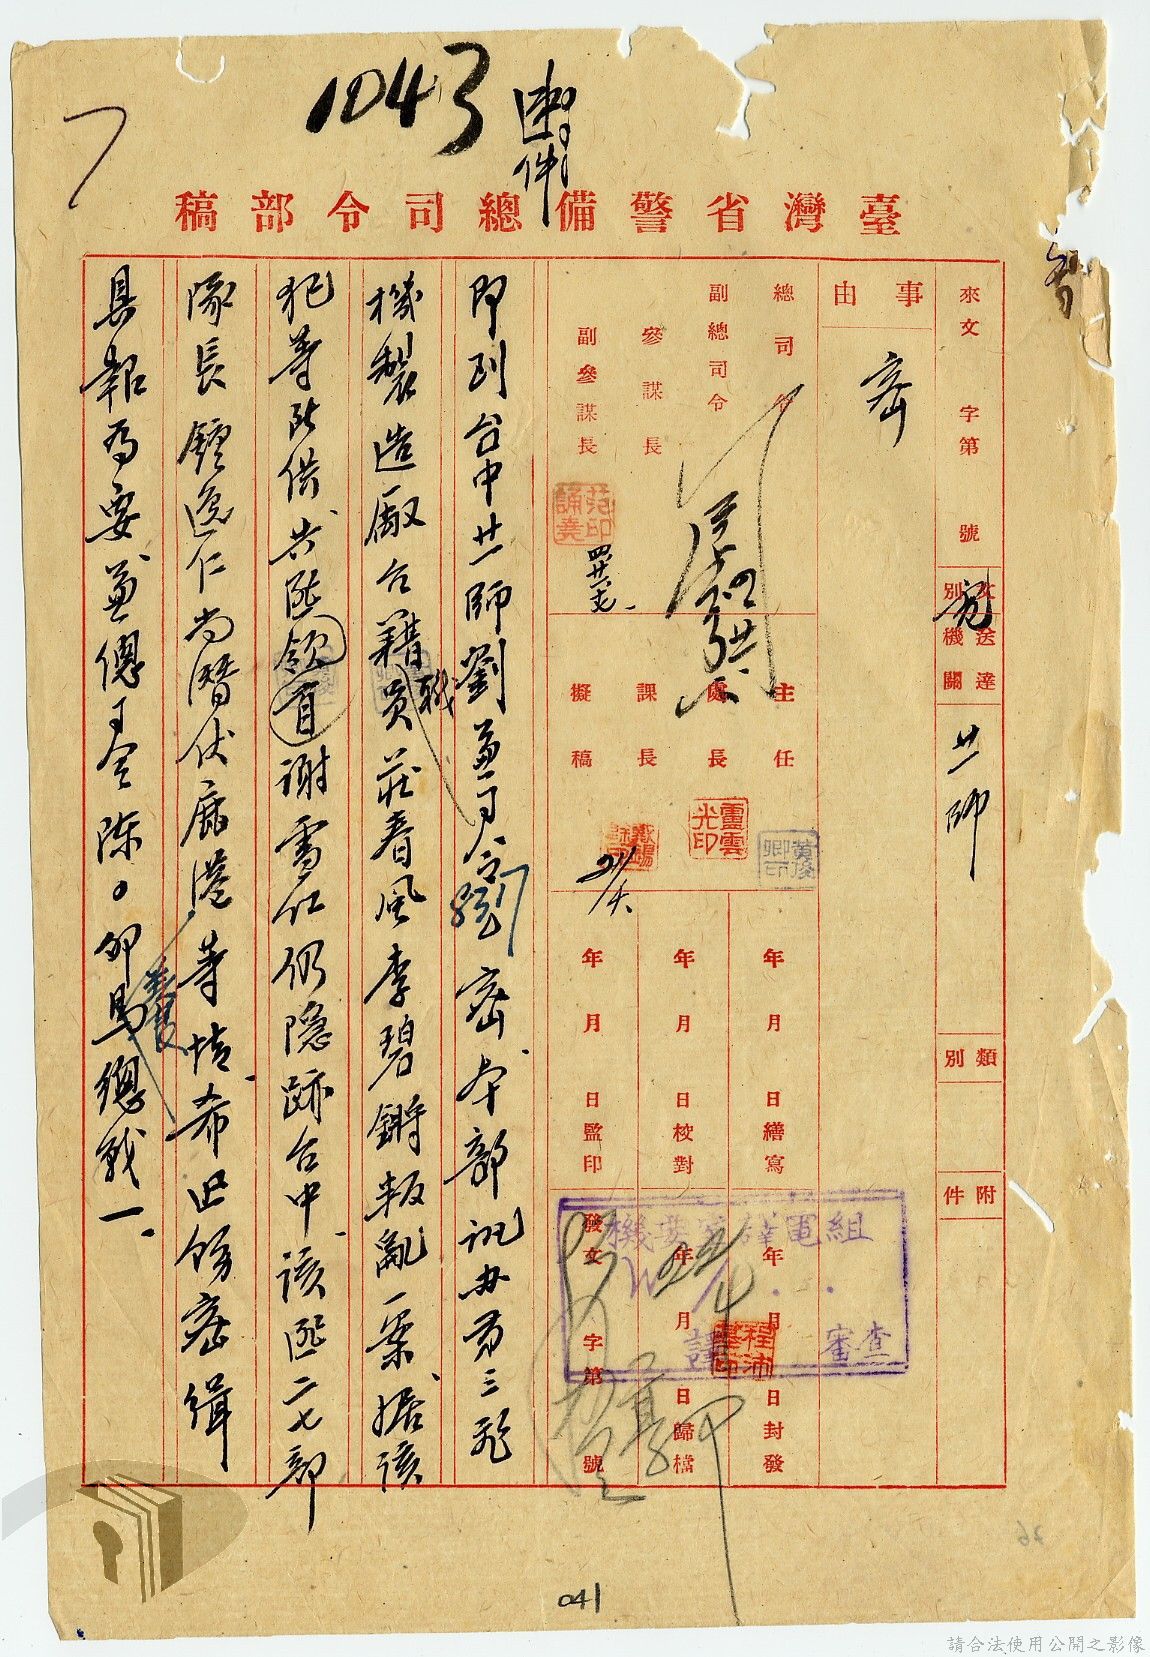 1043
速件
臺灣省警備總司令部稿
來文 字第 號
文別
送達機關
廿一師
類別
附件
事由
密
總司令
副總司令
參謀長
副參謀長
主任
處長
課長
擬稿
年 月 日繕寫
年 月 日校對
年 月 日監印
年 月 日封發
年 月 日歸檔
發文 字第 號
機要室譯電組
審查
即到台中廿一師劉兼司令 密本部訊办第三飛
機製造廠台籍職員莊春風李碧鏘叛亂一案據該
犯等所供共匪領首謝雪红仍隐跡台中該匪二七部
隊長鍾逸仁尚潛伏鹿港等情希迅飭密緝
具報為要兼總司令陳。卯馬總戰一
041
請合法使用公開之影像